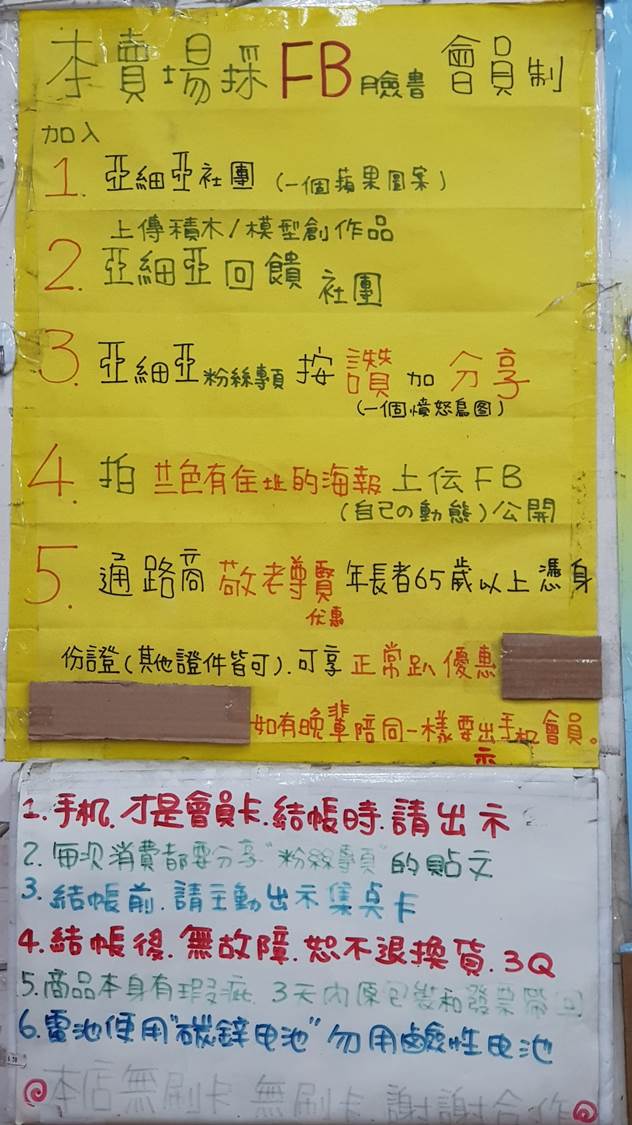 本賣場採FB臉書 會員制
加入
1. 亞細亞社團 (一個蘋果圖案)
上傳積木/模型創作品
2. 亞細亞回饋社團
3. 亞細亞粉絲專頁 按讚加分享
(一個憤怒鳥图)
4. 拍 兰色有住址的海報上伝FB
(自己の動態)公開
5. 通路商 敬老尊賢 年長者65歲以上憑身
优惠
份證(其他證件皆可).可享正常趴優惠
如有晚輩陪同一樣要出示手机會員。
1. 手机.才是會員卡.結帳時.請出示
2. 每次消費都要分享"粉絲專頁"的貼文
3. 結帳前.請主動出示集点卡
4. 結帳後.無故障.恕不退換貨.3Q
5. 商品本身有瑕疵.3天內原包裝和發票帶回
6. 電池使用"碳鋅电池"勿用鹼性电池
本店無刷卡 無刷卡.謝謝合作